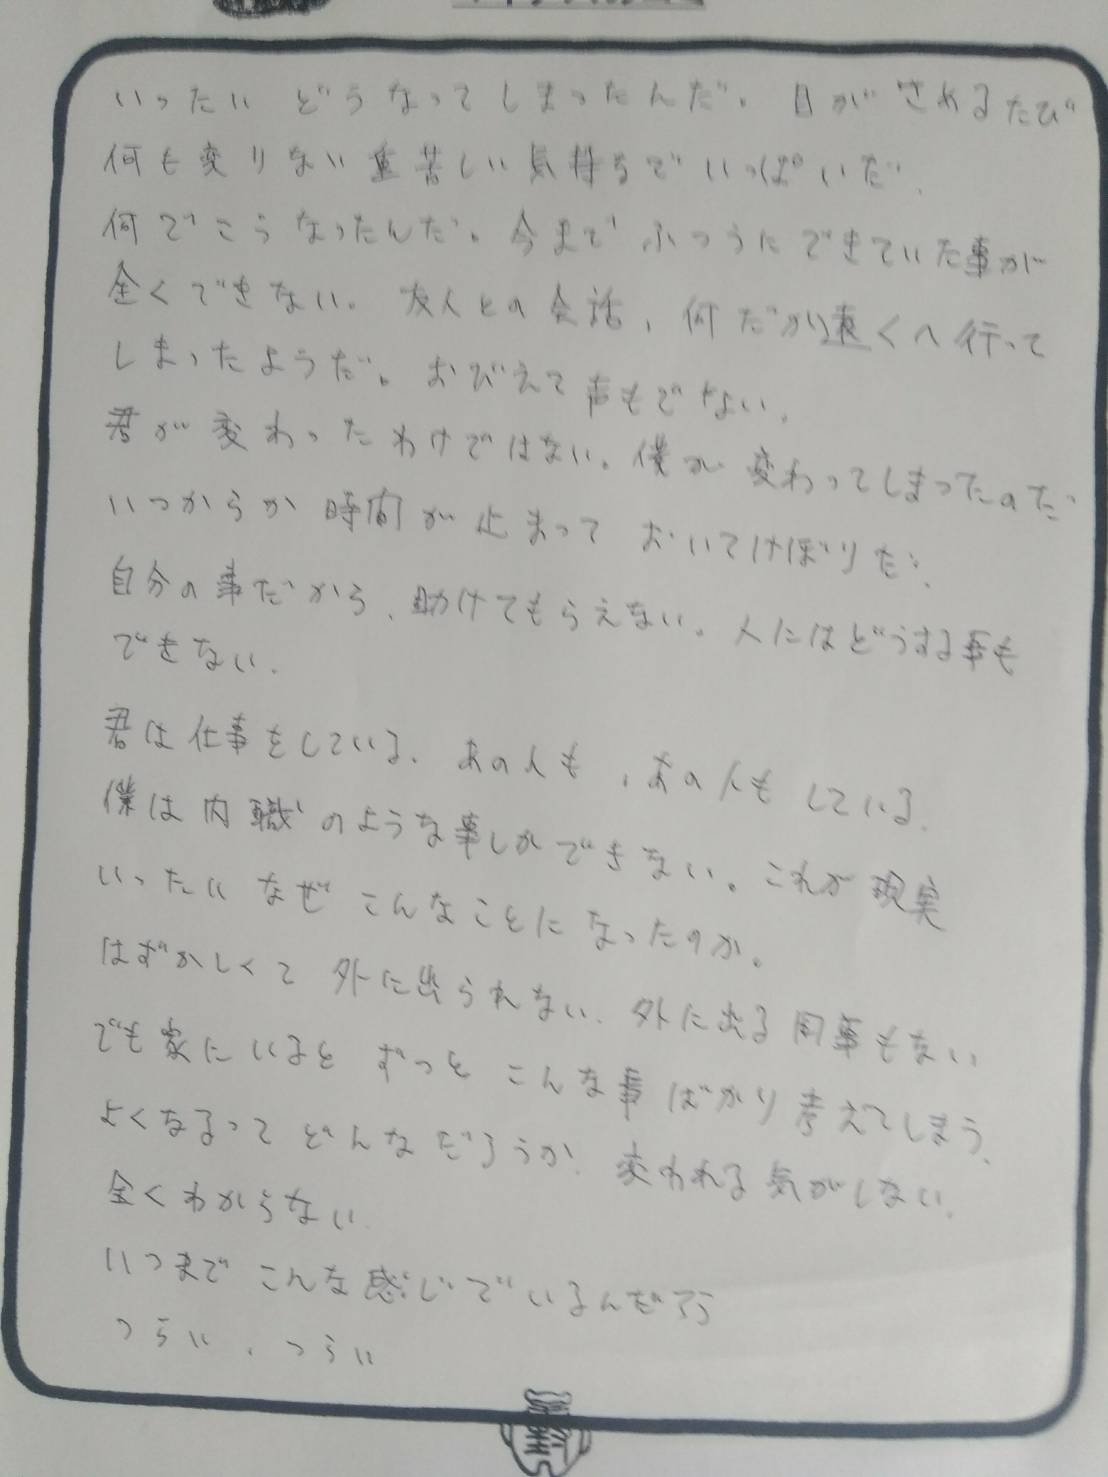 いったい どうなってしまったんだ。目がさめるたび
何も変りない重苦しい気持ちでいっぱいだ、
何でこうなったんだ。今まで ふつうにできていた事が
全くできない。友人との会話、何だか遠くへ行って
しまったようだ。おびえて声もでない。
君が変わったわけではない。僕が変わってしまったのだ
いつからか 時間が止まって おいてけぼりだ、
自分の事だから、助けてもらえない。人にはどうする事も
できない、
君は仕事をしている、あの人も、あの人も している、
僕は内職のような事しかできない。これが現実
いったい なぜ こんなことになったのか。
はずかしくて 外に出られない、外に出る用事もない
でも家にいると ずっと こんな事ばかり考えてしまう、
よくなるって どんなだろうか、変われる気がしない、
全くわからない
いつまで こんな感じでいるんだろう
つらい、つらい